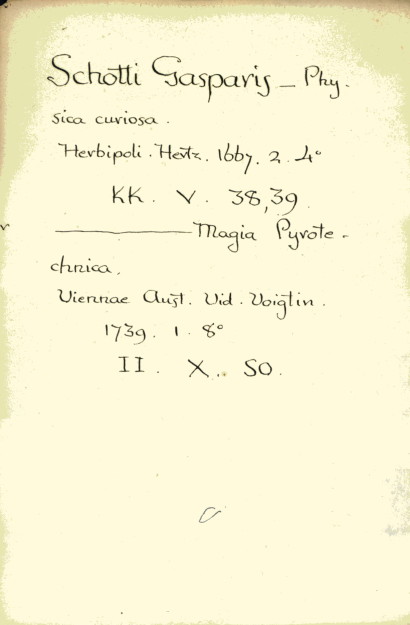 Schotti Gasparis — Phy.
sica curiosa.
Herbipoli. Hertz. 1667. 2. 4°
KK. V. 38,39.
——— Magia Pyrote-
chnica.
Viennae Aust. Vid. Voigtin.
1739. 1. 8°
II. X. 50.